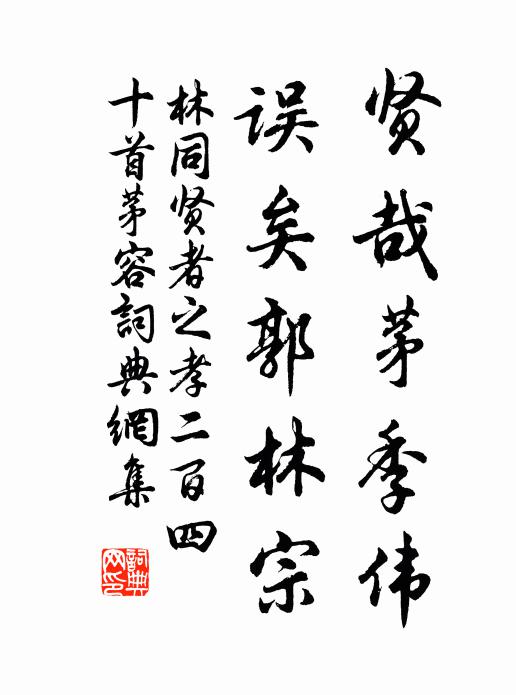 贤哉茅季伟
误矣郭林宗
林同贤者之孝二百四
十首茅容詞典網集
詞典网印